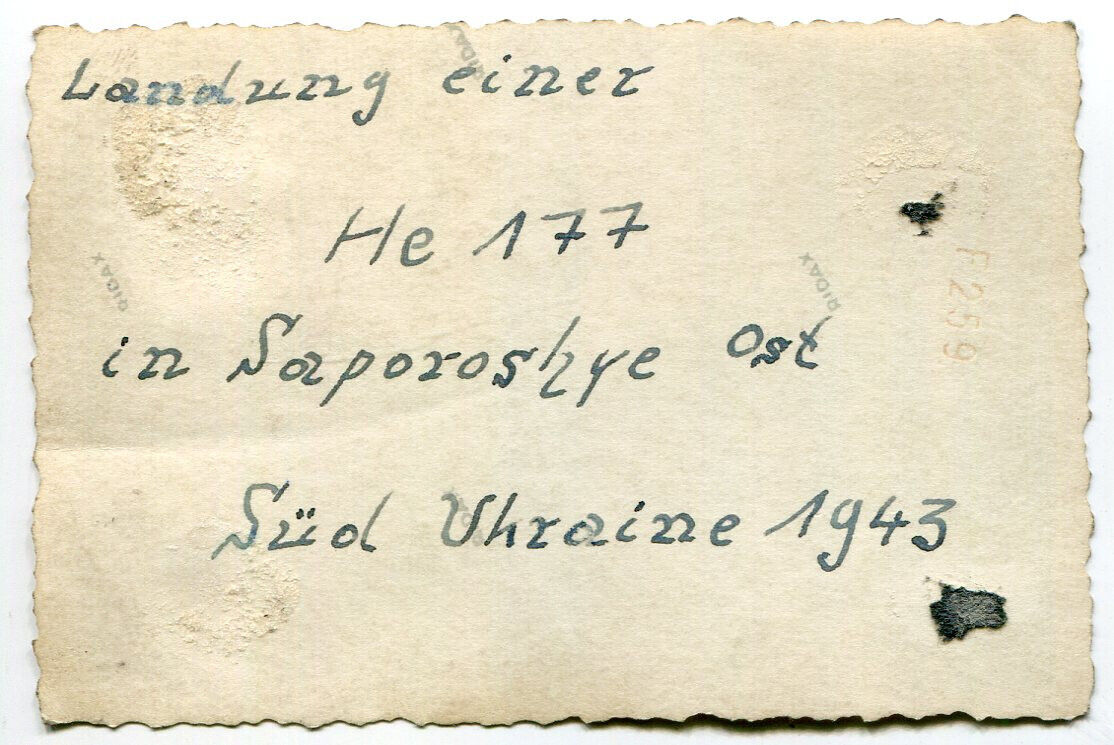 Landung einer
He 177
in Saporoshye Ost
Süd Ukraine 1943
RIDAX
RIDAX
RIDAX
F 259